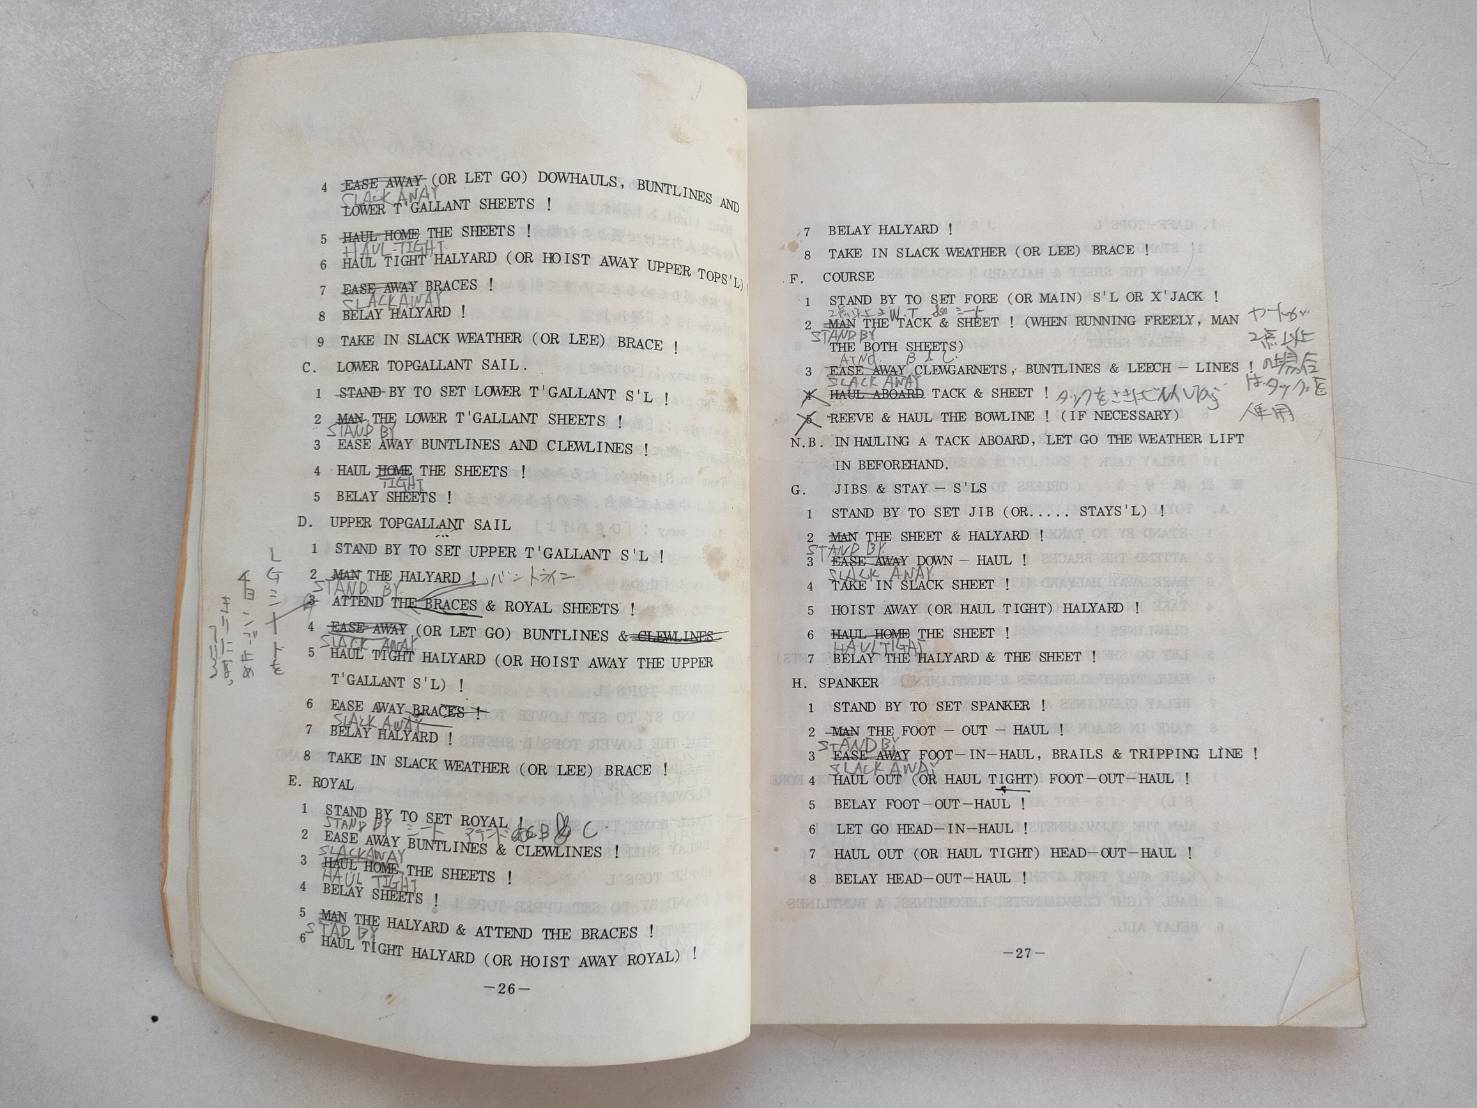 4 EASE AWAY (OR LET GO) DOWHAULS, BUNTLINES AND
SLACK AWAY
LOWER T'GALLANT SHEETS !
5 HAUL HOME THE SHEETS !
HAUL TIGHT
6 HAUL TIGHT HALYARD (OR HOIST AWAY UPPER TOPS'L)
7 EASE AWAY BRACES !
SLACK AWAY
8 BELAY HALYARD !
9 TAKE IN SLACK WEATHER (OR LEE) BRACE !
C. LOWER TOPGALLANT SAIL.
1 STAND BY TO SET LOWER T'GALLANT S'L !
2 MAN THE LOWER T'GALLANT SHEETS !
STAND BY
3 EASE AWAY BUNTLINES AND CLEWLINES !
4 HAUL HOME THE SHEETS !
TIGHT
5 BELAY SHEETS !
D. UPPER TOPGALLANT SAIL
1 STAND BY TO SET UPPER T'GALLANT S'L !
2 MAN THE HALYARD ! バントライン
STAND BY
3 ATTEND THE BRACES & ROYAL SHEETS !
4 EASE AWAY (OR LET GO) BUNTLINES & CLEWLINES
SLACK AWAY
5 HAUL TIGHT HALYARD (OR HOIST AWAY THE UPPER
T'GALLANT S'L) !
6 EASE AWAY BRACES !
SLACK AWAY
7 BELAY HALYARD !
8 TAKE IN SLACK WEATHER (OR LEE) BRACE !
E. ROYAL
1 STAND BY TO SET ROYAL !
STAND BY シート
2 EASE AWAY BUNTLINES & CLEWLINES !
SLACK AWAY
3 HAUL HOME THE SHEETS !
HAUL TIGHT
4 BELAY SHEETS !
5 MAN THE HALYARD & ATTEND THE BRACES !
STAD BY
6 HAUL TIGHT HALYARD (OR HOIST AWAY ROYAL) !
—26—
7 BELAY HALYARD !
8 TAKE IN SLACK WEATHER (OR LEE) BRACE !
F. COURSE
1 STAND BY TO SET FORE (OR MAIN) S'L OR X'JACK !
2 MAN THE TACK & SHEET ! (WHEN RUNNING FREELY, MAN
STAND BY
THE BOTH SHEETS)
3 EASE AWAY CLEWGARNETS, BUNTLINES & LEECH—LINES !
SLACK AWAY
4 HAUL ABOARD TACK & SHEET !
5 REEVE & HAUL THE BOWLINE ! (IF NECESSARY)
ヤードが
2点以上
の場合
はタックを
使用
N.B. IN HAULING A TACK ABOARD, LET GO THE WEATHER LIFT
IN BEFOREHAND.
G. JIBS & STAY—S'LS
1 STAND BY TO SET JIB (OR..... STAYS'L) !
2 MAN THE SHEET & HALYARD !
STAND BY
3 EASE AWAY DOWN—HAUL !
SLACK AWAY
4 TAKE IN SLACK SHEET !
5 HOIST AWAY (OR HAUL TIGHT) HALYARD !
6 HAUL HOME THE SHEET !
HAUL TIGHT
7 BELAY THE HALYARD & THE SHEET !
H. SPANKER
1 STAND BY TO SET SPANKER !
2 MAN THE FOOT—OUT—HAUL !
STAND BY
3 EASE AWAY FOOT—IN—HAUL, BRAILS & TRIPPING LINE !
SLACK AWAY
4 HAUL OUT (OR HAUL TIGHT) FOOT—OUT—HAUL !
5 BELAY FOOT—OUT—HAUL !
6 LET GO HEAD—IN—HAUL !
7 HAUL OUT (OR HAUL TIGHT) HEAD—OUT—HAUL !
8 BELAY HEAD—OUT—HAUL !
—27—